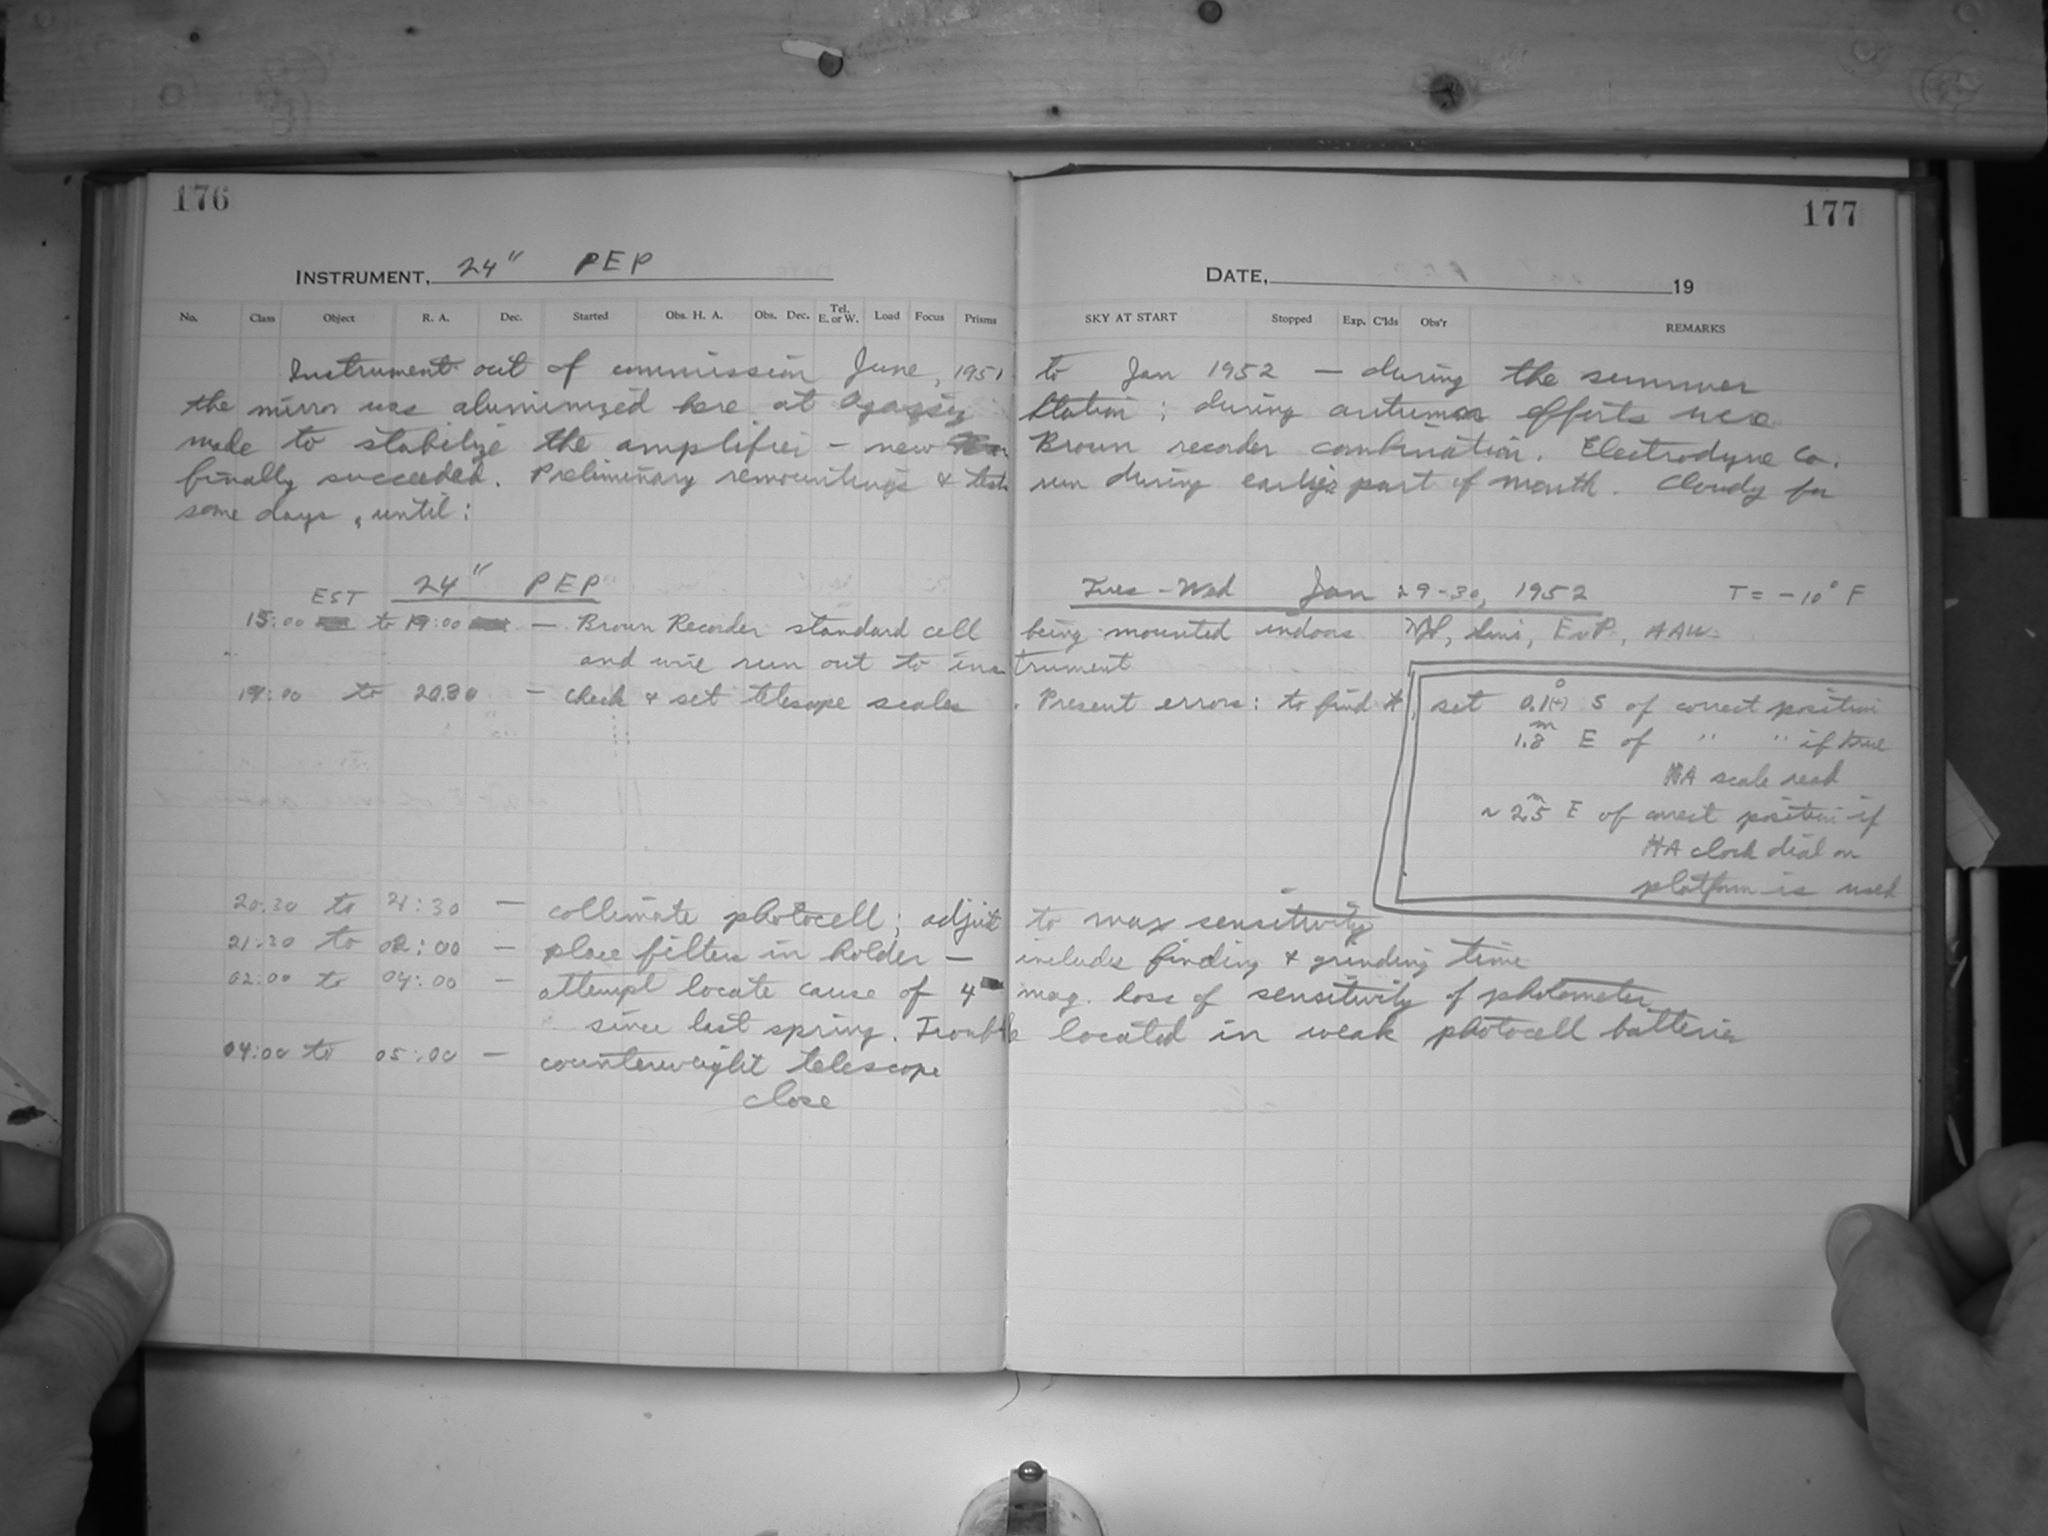 176
177
INSTRUMENT, 24" PEP
DATE, 19
No. Class Object R. A. Dec. Started Obs. H. A. Obs. Dec. Tel. E. or W. Load Focus Prisms SKY AT START Stopped Exp. C'lds Obs'r REMARKS
Instrument out of commission June, 1951 to Jan 1952 — during the summer
the mirror was aluminized here at Agassiz Station; during autumn efforts were
made to stabilize the amplifier - new Brown recorder combination. Electrodyne Co.
finally succeeded. Preliminary remountings & tests run during earlier part of month. Cloudy for
some days, until:
24" PEP Tues - Wed Jan 29-30, 1952 T = -10° F
EST
15:00 to 19:00 — Brown Recorder standard cell being mounted indoors EvP, AAW.
and wire run out to instrument
19:00 to 20:30 — check & set telescope scales. Present errors: to find *, set 0.1°(+) S of correct position
1.8m E of " " if true
HA scale read
~ 2.5m E of correct position if
HA clock dial on
platform is used
20:30 to 21:30 — collimate photocell; adjust to max sensitivity
21:30 to 02:00 — place filters in holder — includes finding & grinding time
02:00 to 04:00 — attempt locate cause of 4 mag. loss of sensitivity of photometer
since last spring. Trouble located in weak photocell batteries
04:00 to 05:00 — counterweight telescope
close